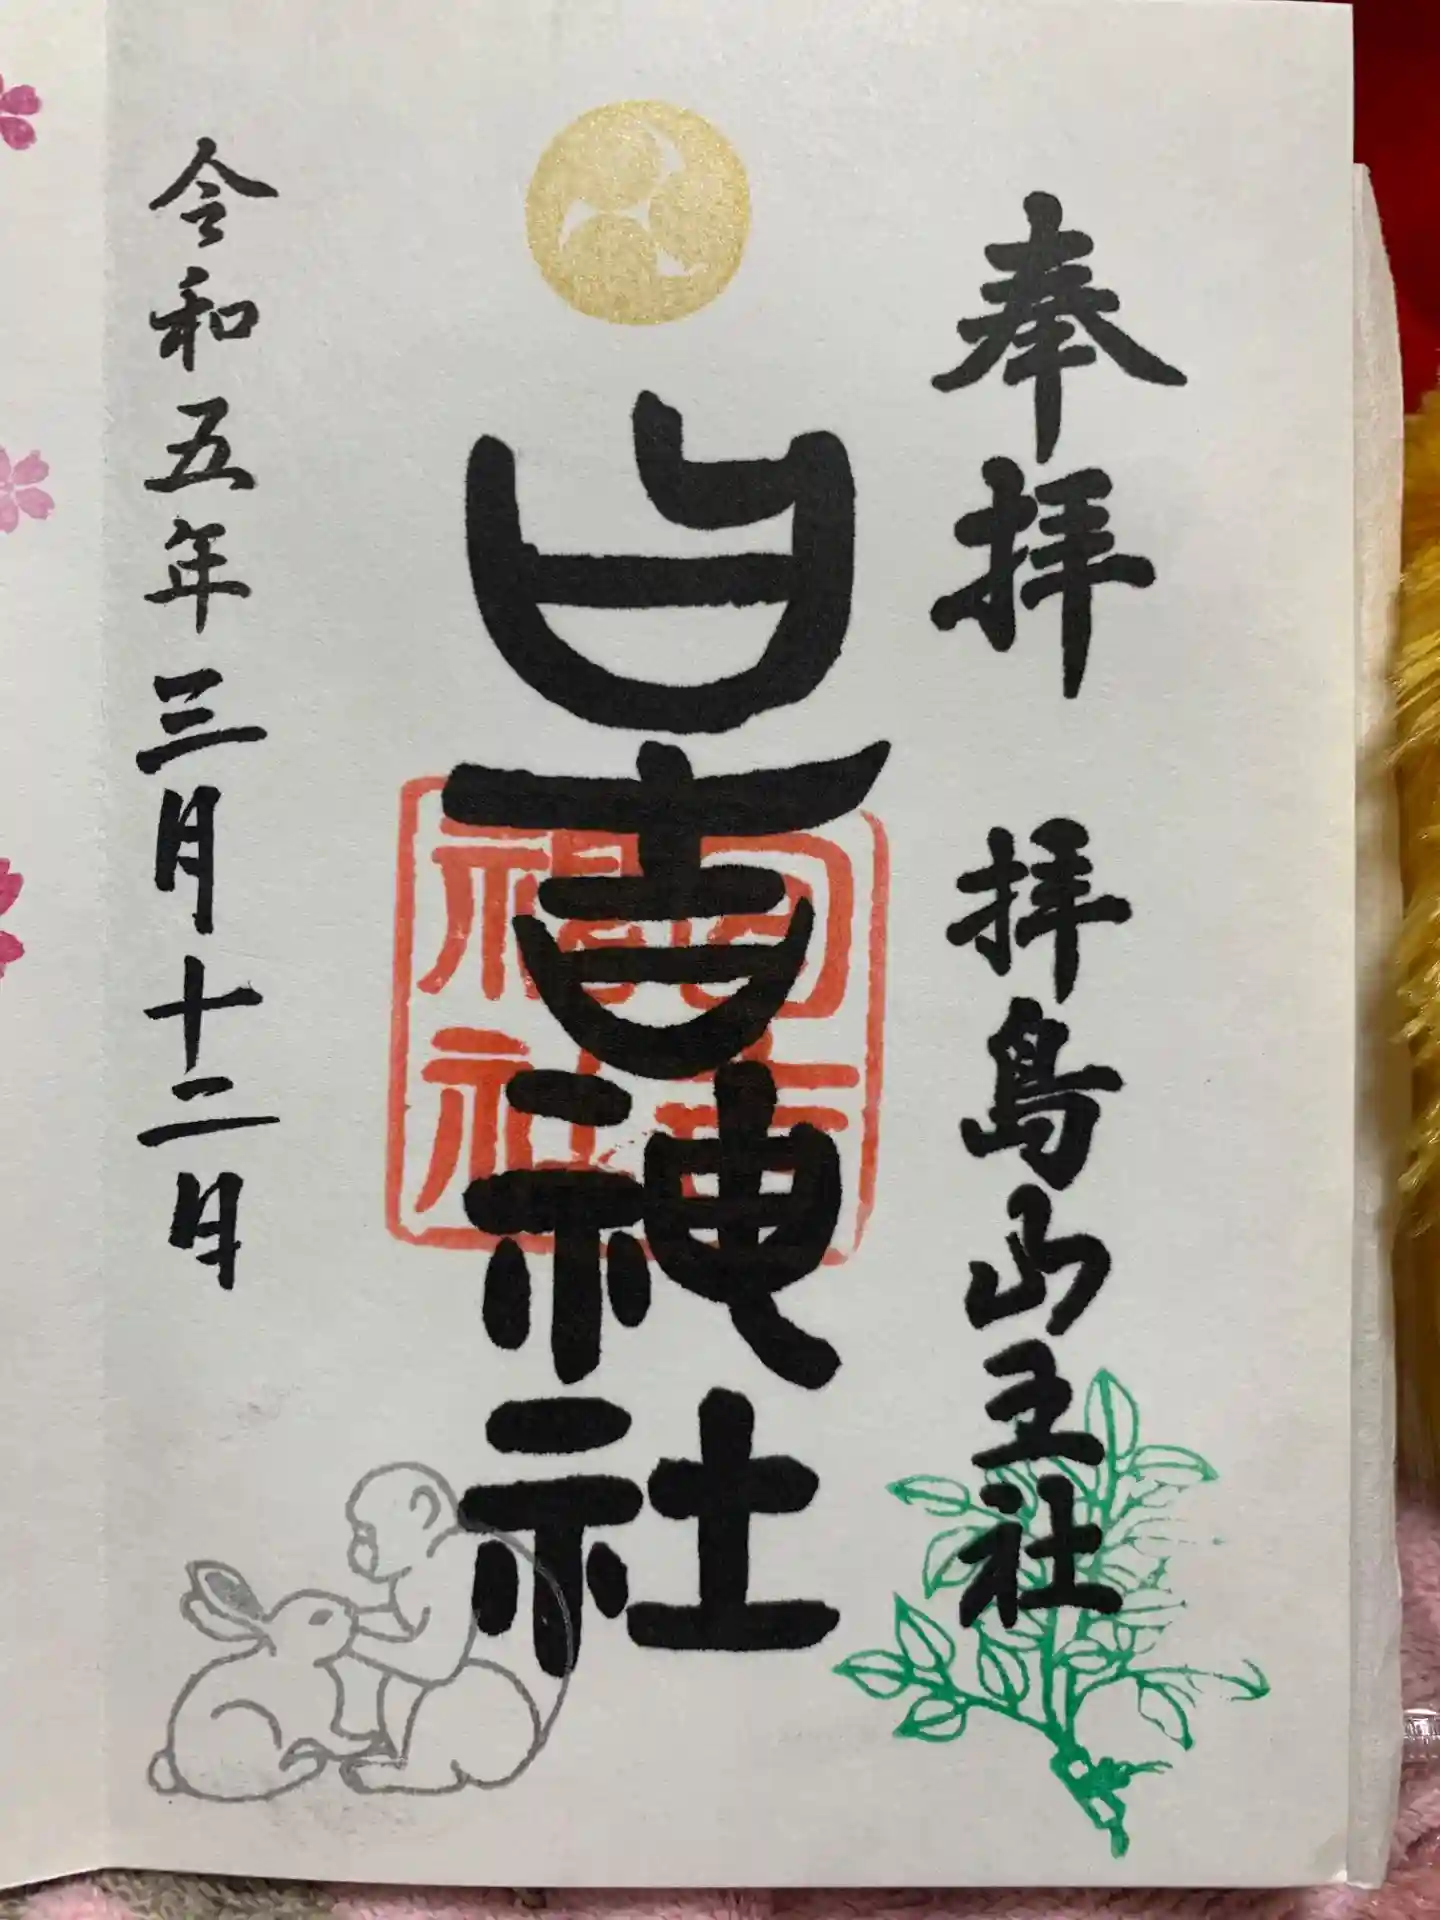 奉拝　拝島山王社
日吉神社
令和五年三月十二日